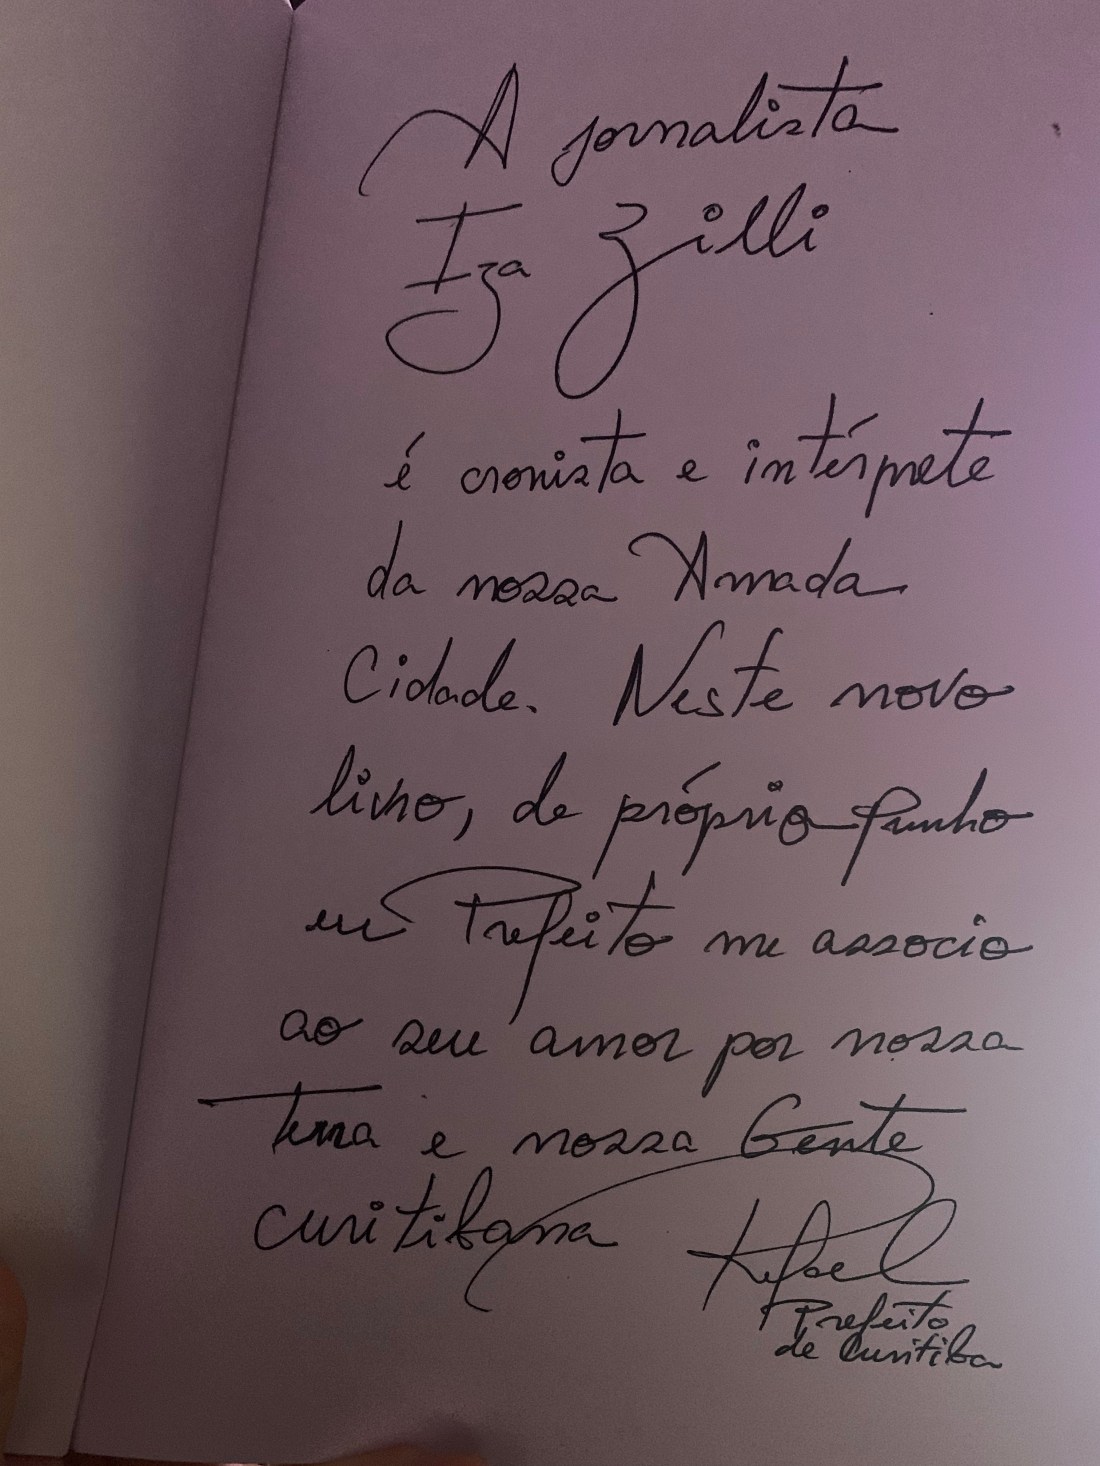 A jornalista
Iza Zilli
é cronista e intérprete
da nossa Amada
Cidade. Neste novo
livro, de próprio punho
eu Prefeito me associo
ao seu amor por nossa
Terra e nossa Gente
curitibana
Rafael
Prefeito
de Curitiba